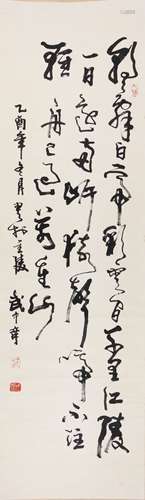 朝辭白帝彩雲間千里江陵
一日還兩岸猿聲啼不住
輕舟已過萬重山
乙酉年冬月書於金陵
武中奇